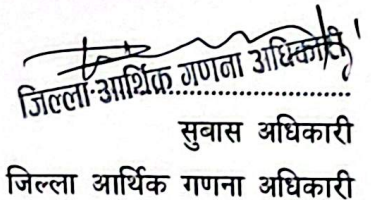 जिल्ला आर्थिक गणना अधिकारी
सुवास अधिकारी
जिल्ला आर्थिक गणना अधिकारी